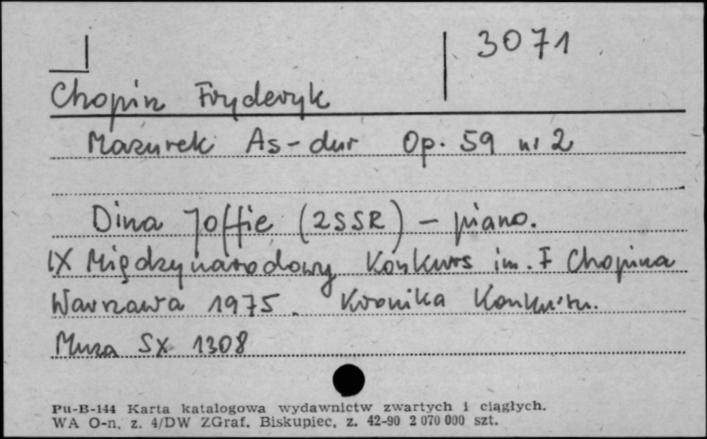 3071
Chopin Fryderyk
Mazurek As-dur Op. 59 nr 2
Dina Joffie (ZSSR) - piano.
IX Międzynarodowy Konkurs im. F Chopina
Warszawa 1975. Kronika Konkursu.
Muza SX 1308
Pu-B-144 Karta katalogowa wydawnictw zwartych i ciągłych.
WA O-n. z. 4/DW ZGraf. Biskupiec, z. 42-90 2 070 000 szt.